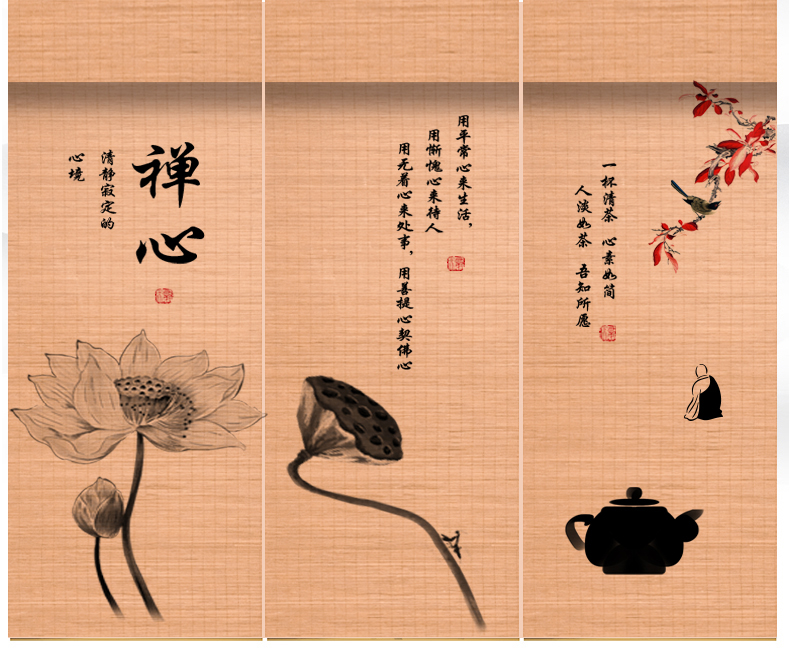 禅心
清静寂定的
心境
用平常心来生活，
用惭愧心来待人
用无着心来处事，用善提心契佛心
一杯清茶 心素如简
人淡如茶 吾知所愿